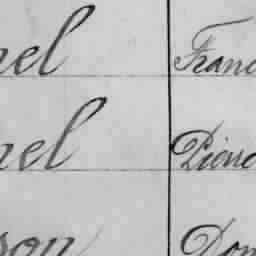 nel Franc
nel Pierre
son Dom